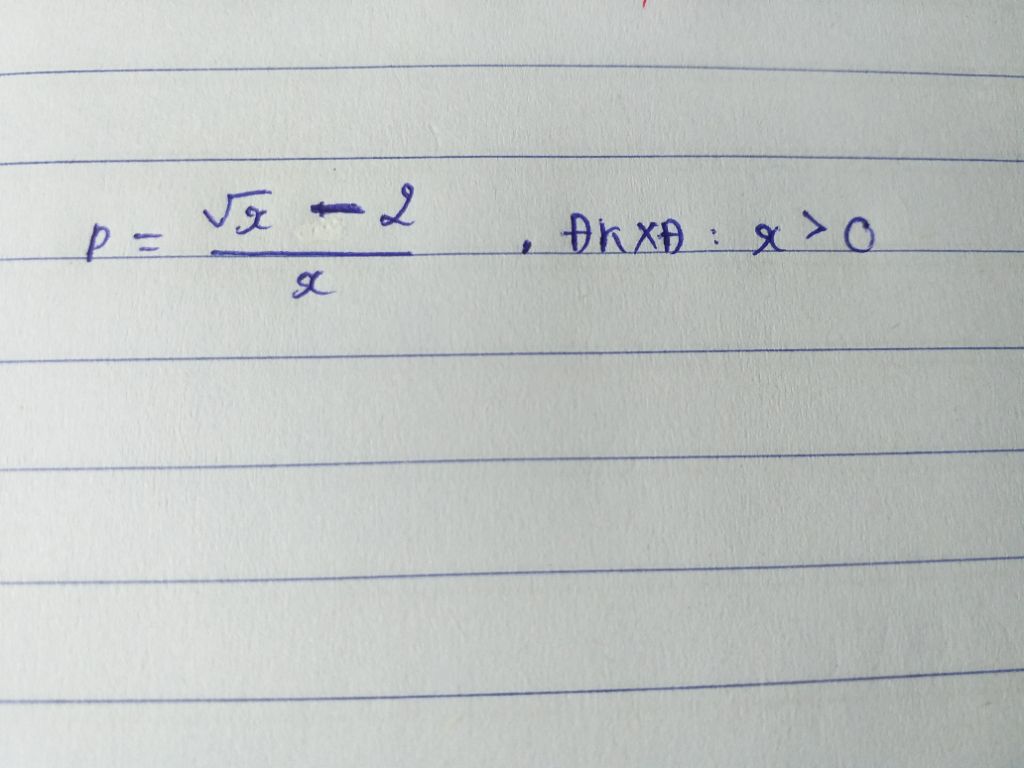 P = \frac{\sqrt{x} - 2}{x} , ĐKXĐ : x > 0